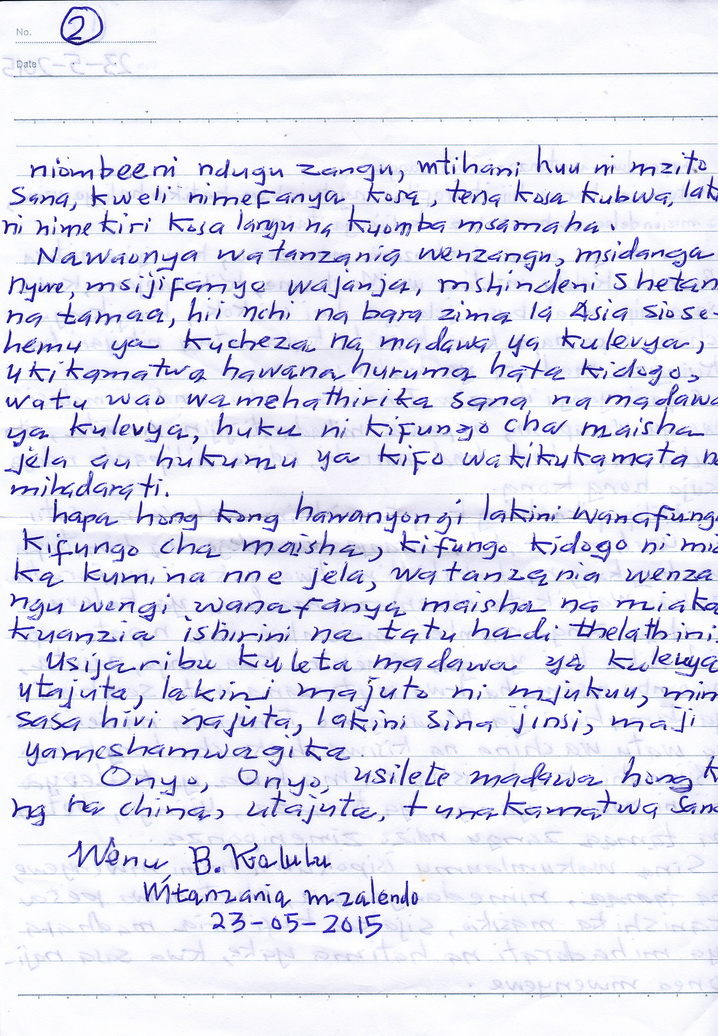 No. 2
Date
niombeeni ndugu zangu, mtihani huu ni mzito
Sana, kweli nimefanya kosa, tena kosa kubwa, lak
ni nimekiri kosa langu na kuomba msamaha.
Nawaonya watanzania wenzangu, msidanga
nywe, msijifanye wajanja, mshindeni Shetan
na tamaa, hii nchi na bara zima la Asia siose-
hemu ya kucheza na madawa ya kulevya,
ukikamatwa hawana huruma hata kidogo,
watu wao wamehathirika sana na madawa
ya kulevya, huku ni kifungo cha maisha
jela au hukumu ya kifo wakikukamata n
mihadarati.
hapa hong kong hawanyongi lakini wanafungo
kifungo cha maisha, kifungo kidogo ni mia
ka kumi na nne jela, watanzania wenza
ngu wengi wanafanya maisha na miaka
kuanzia ishirini na tatu hadi thelathini
Usijaribu kuleta madawa ya kulevya
utajuta, lakini majuto ni mjukuu, mim
sasa hivi najuta, lakini sina jinsi, maji
yameshamwagika
Onyo, Onyo, usilete madawa hong k
ng na china, utajuta, tunakamatwa Sana
Wenu B. Kalulu
Mtanzania mzalendo
23-05-2015